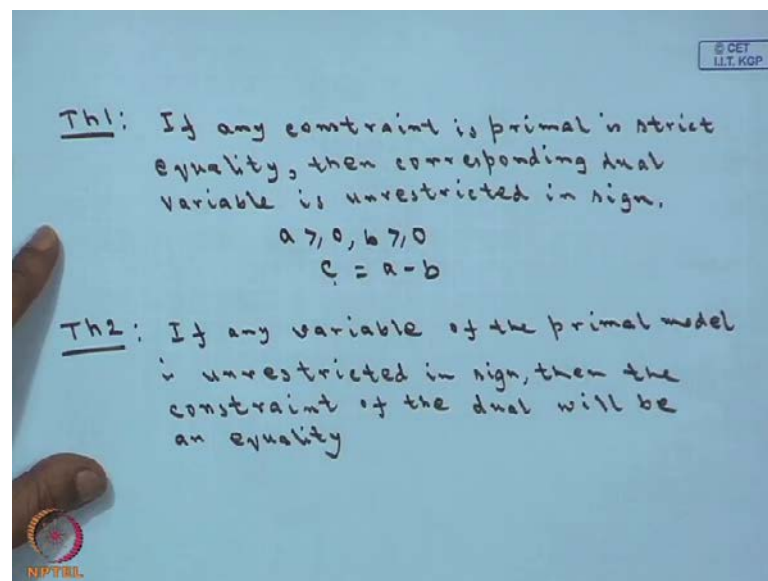 © CET
I.I.T. KGP
Th1: If any constraint is primal is strict
equality, then corresponding dual
variable is unrestricted in sign.
a ≥ 0, b ≥ 0
c = a - b
Th2: If any variable of the primal model
is unrestricted in sign, then the
constraint of the dual will be
an equality
NPTEL